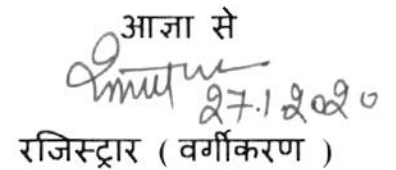 आज्ञा से
27.1.2020
रजिस्ट्रार ( वर्गीकरण )